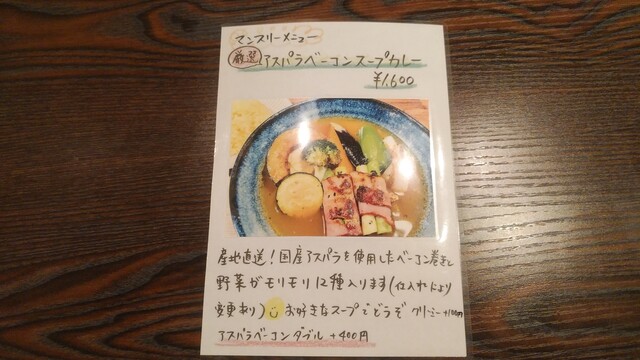 マンスリーメニュー
厳選 アスパラベーコンスープカレー
¥1,600
産地直送!国産アスパラを使用したベーコン巻きと
野菜がモリモリ12種入ります(仕入れにより
変更あり)お好きなスープでどうぞ クリーミー+100円
アスパラベーコンダブル +400円